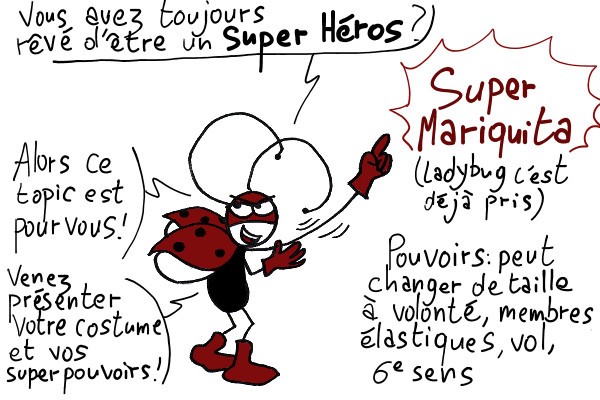 Vous avez toujours
rêvé d'être un Super Héros?
Super
Mariquita
(Ladybug c'est
déjà pris)
Alors ce
topic est
pour vous!
Venez
présenter
votre costume
et vos
superpouvoirs!
Pouvoirs: peut
changer de taille
à volonté, membres
élastiques, vol,
6e sens